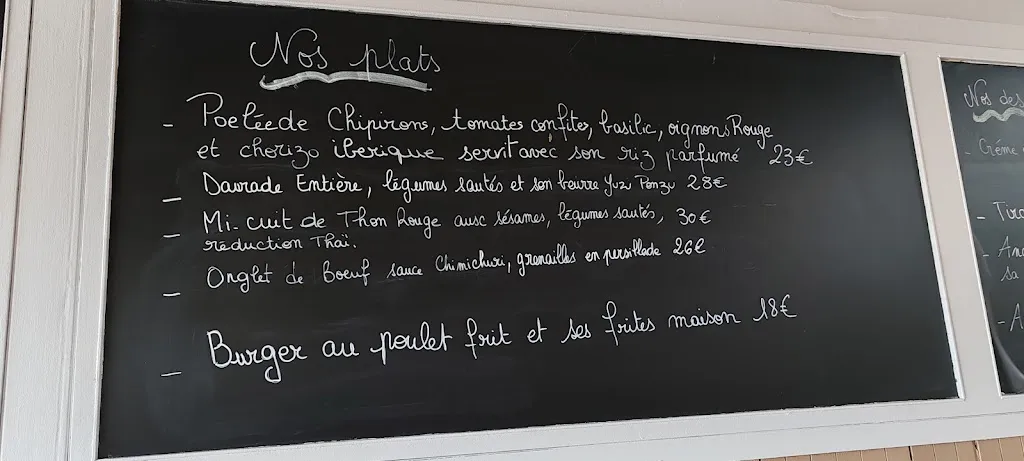 Nos plats
- Poelée de Chipirons, tomates confites, basilic, oignons Rouge
et chorizo iberique servit avec son riz parfumé 23€
- Daurade Entière, légumes sautés et son beurre Yuzu Ponzu 28€
- Mi-cuit de Thon Rouge aux sésames, légumes sautés, 30€
reduction Thaï.
- Onglet de Boeuf sauce Chimichuri, grenailles en persillade 26€
- Burger au poulet frit et ses frites maison 18€
Nos des
- Crème
- Tira
- Ana
sa
- A